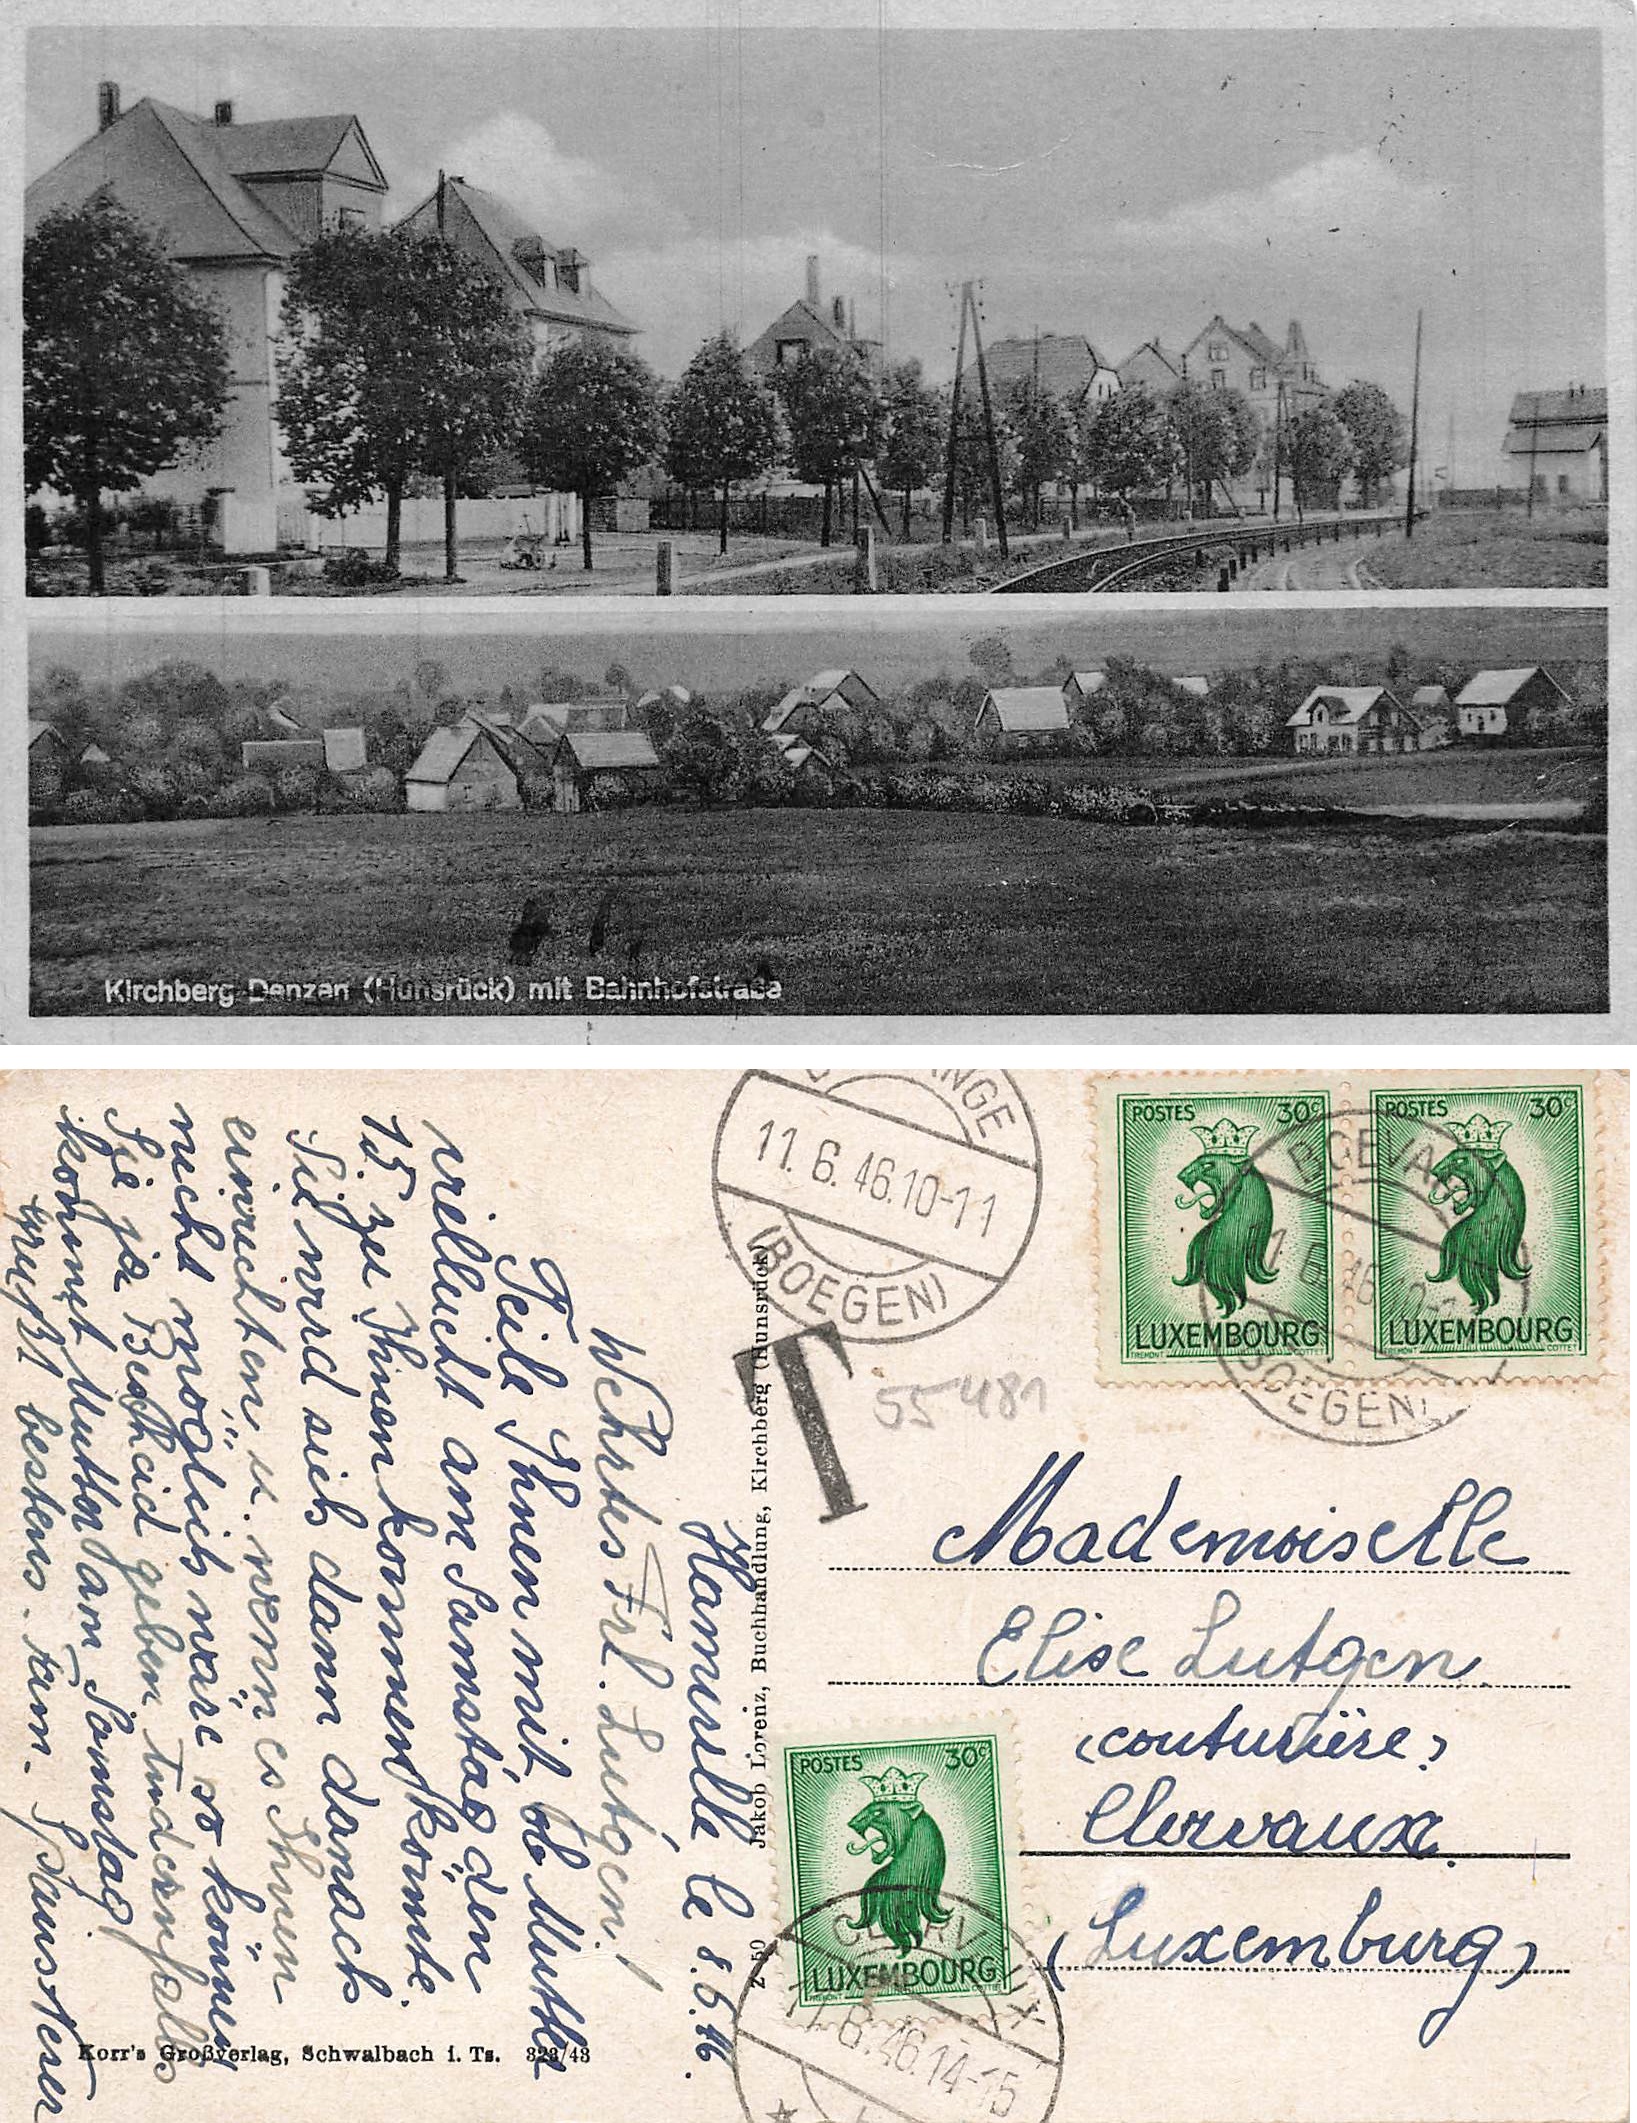 Kirchberg-Denzen (Hunsrück) mit Bahnhofstraße
11.6.46.10-11
(BOEGEN)
POSTES 30c
LUXEMBOURG
POSTES 30c
LUXEMBOURG
BOEVANGE
11.6.46.10-11
(BOEGEN)
T
55481
Hamiville le 8.6.46.
Wehrtes Frl. Lutgen!
Teile Ihnen mit, ob Mutter
vielleicht am Samstag den
15. zu Ihnen kommen könnte.
Sie wird sich dann danach
einrichten, u. wenn es Ihnen
nicht möglich wäre so können
Sie ja Bescheid geben. Andernfalls
kommt Mutter am Samstag.
grüßt bestens. Fam.
Mademoiselle
Elise Lutgen
(couturière)
Clervaux.
(Luxemburg)
POSTES 30c
LUXEMBOURG
CLERVAUX
11.6.46.14-15
Z 50 Jakob Lorenz, Buchhandlung, Kirchberg (Hunsrück)
Korr's Großverlag, Schwalbach i. Ts. 323/43